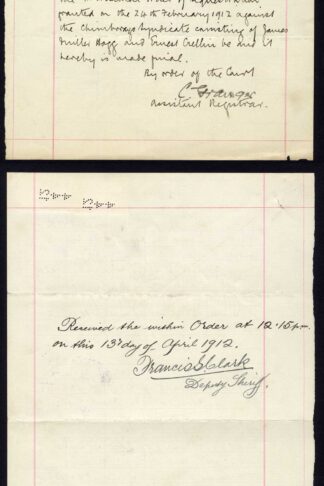 granted on the 24th February 1912 against
the Chimborazo Syndicate consisting of James
Muller Hogg and Ernest Crellin be and it
hereby is made final.
By order of the Court
Assistant Registrar.
Received the within Order at 12.15 p.m.
on this 13th day of April 1912.
Francis S Clark
Deputy Sheriff.